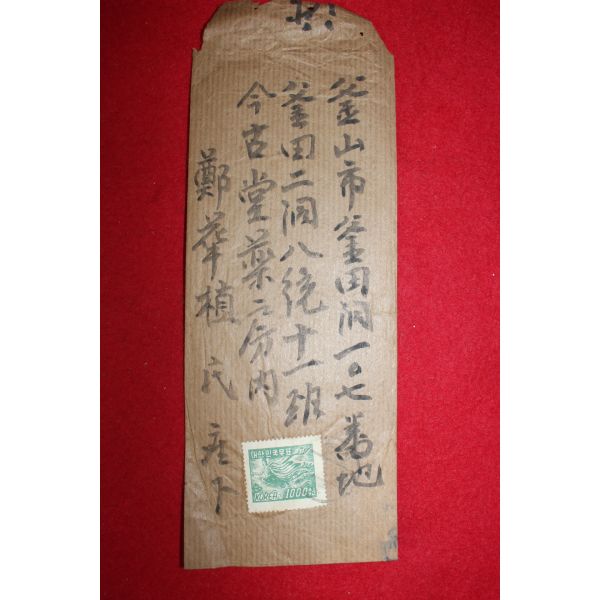 釜山市釜田洞一〇七番地
釜田二洞八統十一班
今古堂薬二房内
鄭華植氏座下
대한민국우표
KOREA 1000원